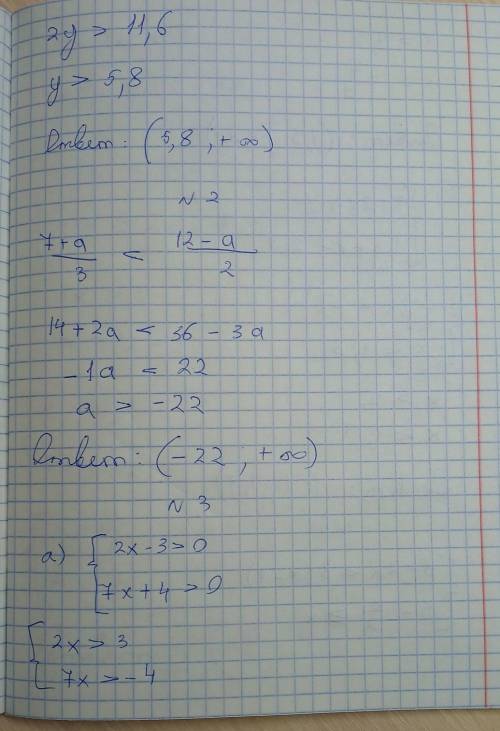 2y > 11,6
y > 5,8
Ответ: (5,8 ; +∞)
N 2
7+a/3 < 12-a/2
14 + 2a < 36 - 3a
-1a < 22
a > -22
Ответ: (-22 ; +∞)
N 3
а) { 2x - 3 > 0
7x + 4 > 0
{ 2x > 3
7x > -4